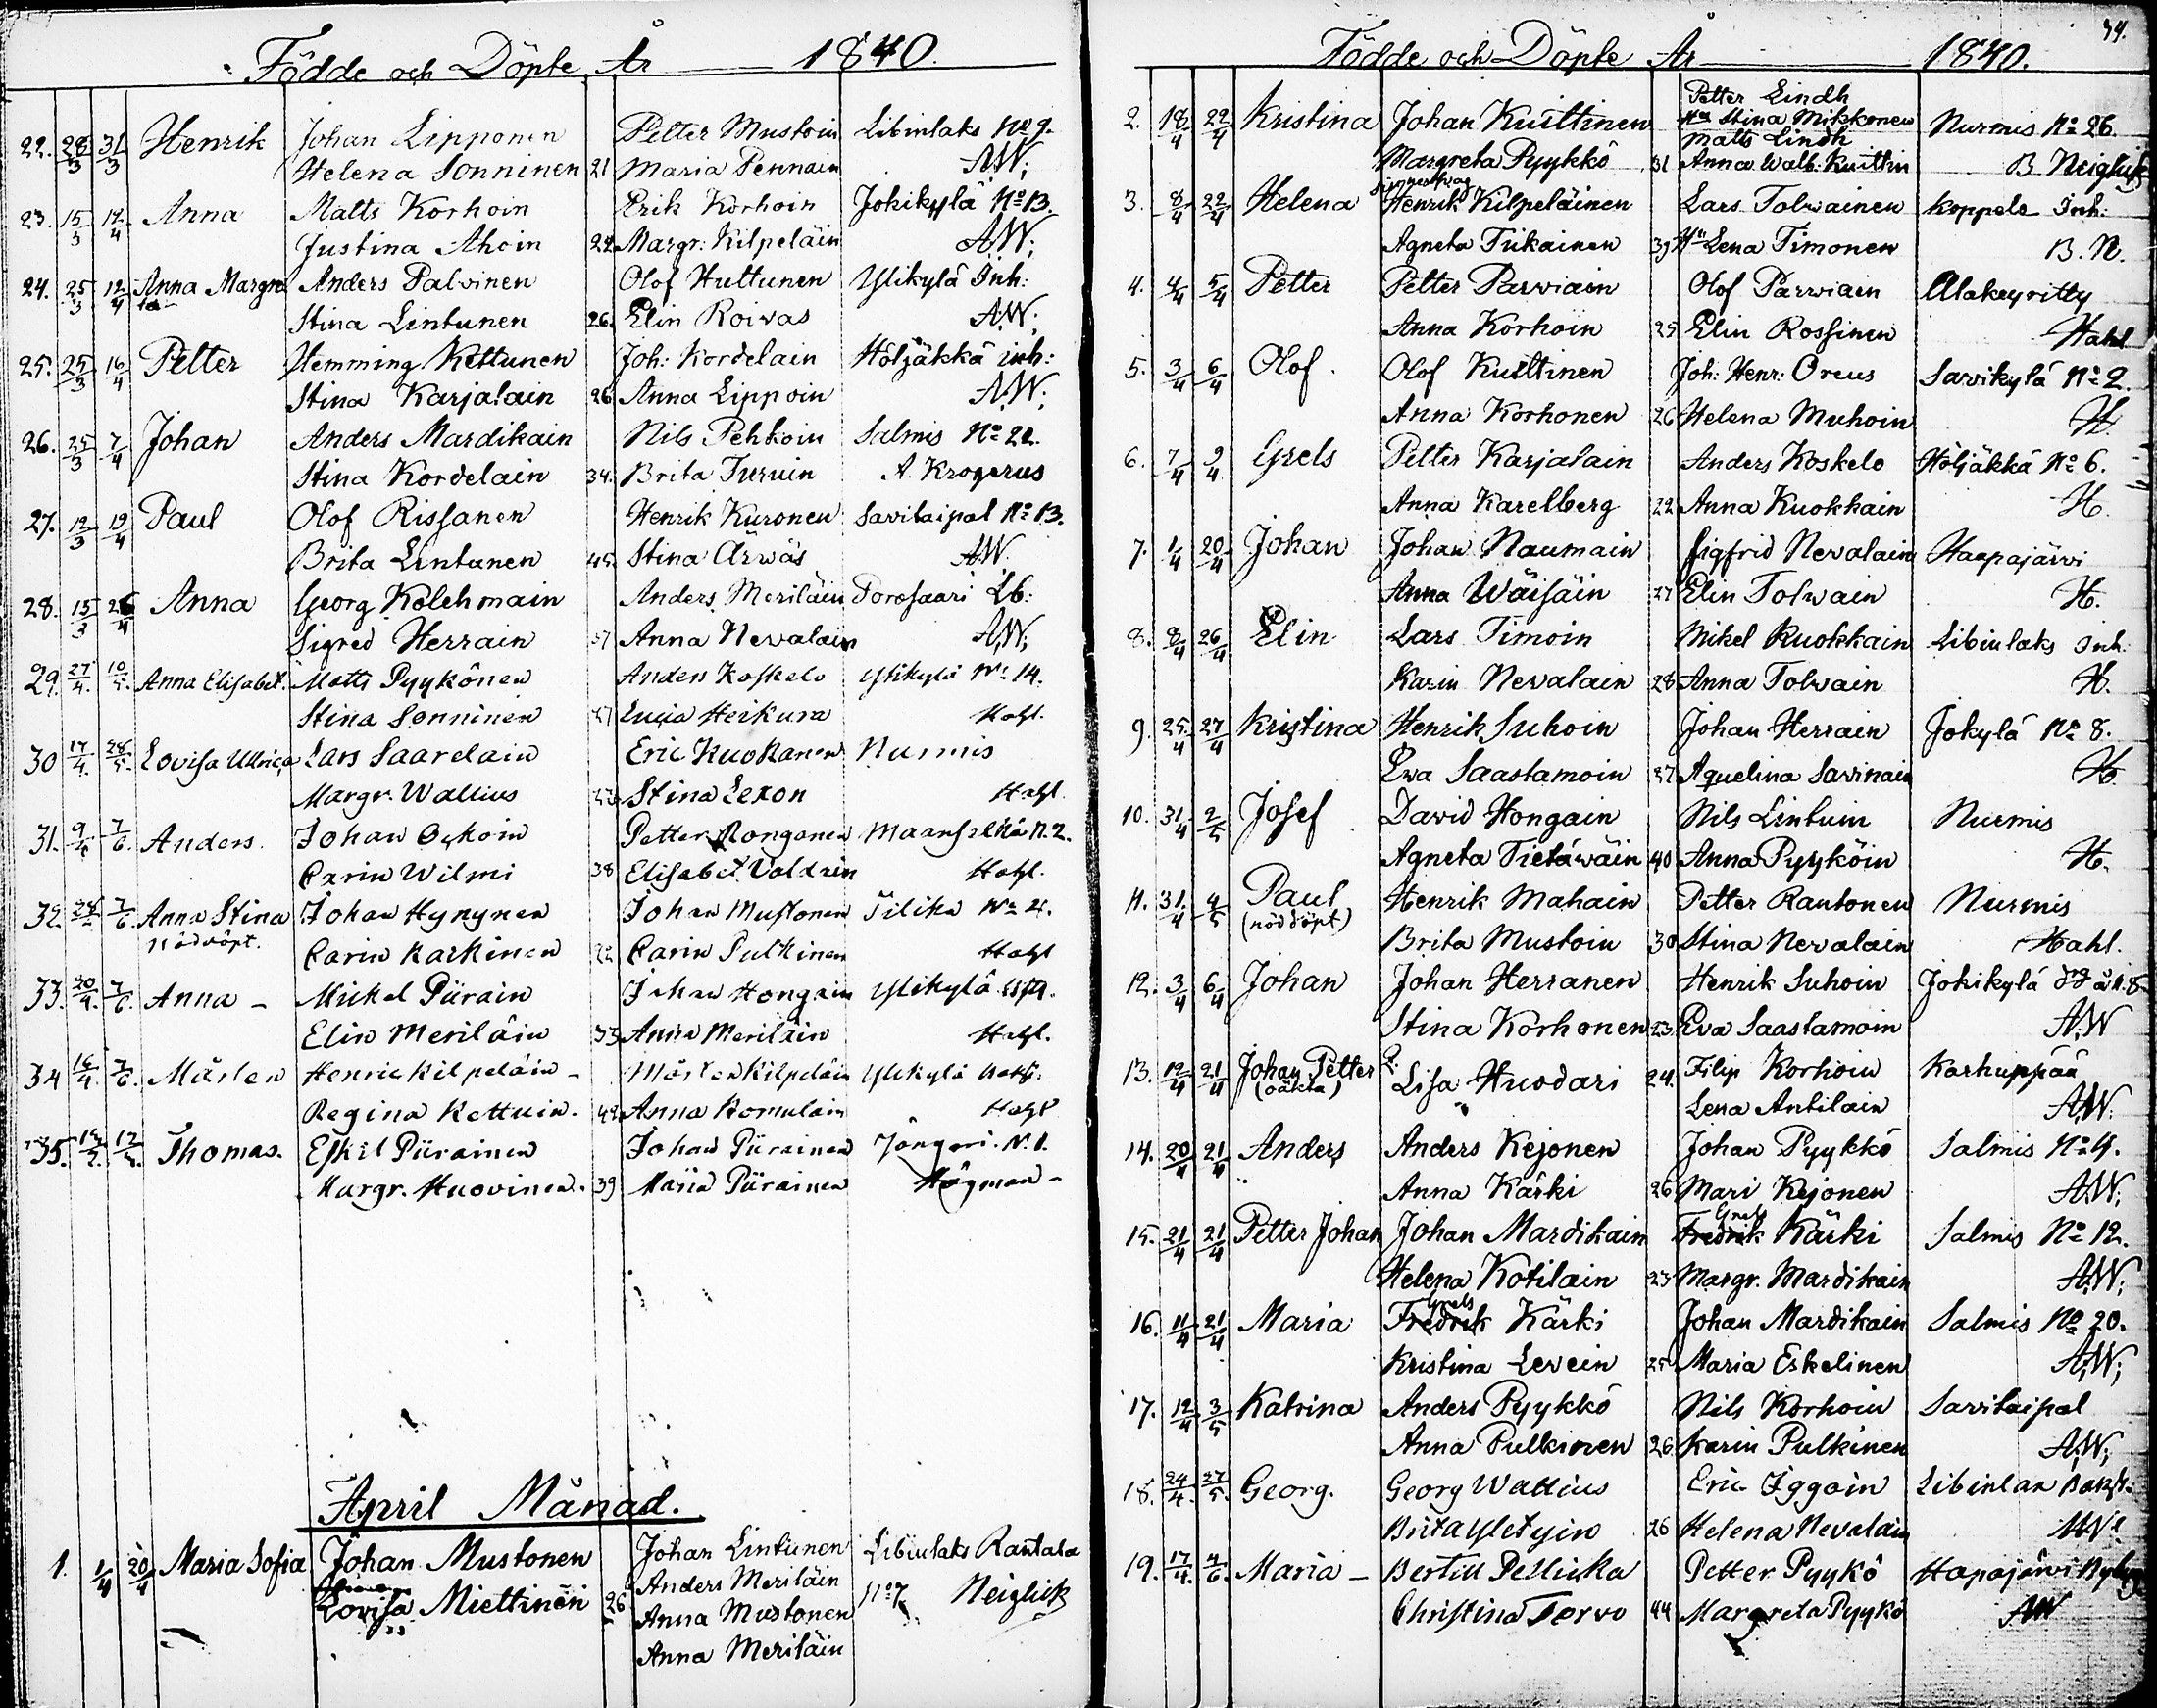 Födde och Döpte År 1840.
22. 28/3 31/3 Henrik Johan Lipponen Petter Mustoin Libinlaks No 9.
Helena Sonninen 21 Maria Pennain A.W;
23. 15/3 12/4 Anna Matts Korhoin Erik Korhoin Jokikylä No 13.
Justina Ahoin 22 Margr: Kilpeläin A.W;
24. 25/3 12/4 Anna Margre Anders Palvinen Olof Huttunen Ylikylä Inh:
ta Stina Lintunen 26. Elin Roivas A.W;
25. 25/3 16/4 Petter Hemming Kettunen Joh: Kordelain Höljäkkä inh:
Stina Karjalain 26 Anna Lippoin A.W;
26. 25/3 7/4 Johan Anders Mardikain Nils Pehkoin Salmis No 22.
Stina Kordelain 34. Brita Turuin A. Krogerus
27. 12/3 19/4 Paul Olof Rissanen Henrik Kuronen Savikaipal No 13.
Brita Lintunen 45. Stina Ärwäs A.W.
28. 15/3 26/4 Anna Georg Kolehmain Anders Meriläin Porosaari Lb:
Sigred Herrain 37 Anna Nevalain A.W;
29. 27/4. 10/5. Anna Elisabet. Matts Pyykönen Anders Koskelo Ylikylä No 14.
Stina Sonninen 27 Lucia Heikura Hahl.
30 17/4. 28/5. Lovisa Ulrica Lars Saarelain Eric Kuokanen Nurmis
Margr. Wallius Stina Lexon Hahl.
31. 9/4. 7/6. Anders. Johan Ockoin Petter Ronganen Maanselkä N. 2.
Carin Wilmi 38 Elisabet Valdrin Hahl.
32. 28/4 7/6. Anna Stina Johan Hynynen Johan Mustonen Tilika No 4.
Nöddöpt. Carin Karkinen 22 Carin Pulkinen Hahl
33. 20/4. 7/6. Anna - Mickel Piirain Johan Hongain Ylikylä
Elin Meriläin 33 Anna Meriläin Hahl.
34 16/4. 7/6. Mårten Henric Kilpeläin - Mårten Kilpeläin Ylikylä
Regina Kettuin. 42 Anna Romulain Hahl
35. Thomas. Eskil Piirainen Johan Piirainen Jongeri. N. 1.
Margr. Huovinen. 39 Maria Piirainen Högman -
April Månad.
1. 1/4 20/4 Maria Sofia Johan Mustonen Johan Lintunen Libinlaks Rantala
Lovisa Miettinen 26 Anders Meriläin No 7. Neiglick
Anna Mustonen
Anna Meriläin
34.
Födde och Döpte År 1840.
Petter Lindh
2. 18/4 22/4 Kristina Johan Kuittinen Hu Stina Mikkonen Nurmis No 26.
Matts Lindh
Margreta Pyykkö 31 Anna Walb: Kuittin B Neiglick
3. 8/4 22/4 Helena Henrik Kilpeläinen Lars Tolwainen Koppelo Inh:
Agneta Tiikainen 39 Hu Lena Timonen B. N.
4. 4/4 5/4 Petter Petter Parwiain Olof Parwiain Alakeyritty
Anna Korhoin 25 Elin Rossinen Hahl
5. 3/4 6/4 Olof. Olof Kuittinen Joh: Henr: Oreus Savikylä No 2.
Anna Korhonen 26 Helena Muhoin H.
6. 7/4 9/4 Grels Petter Karjalain Anders Koskelo Höljäkkä No 6.
Anna Karelberg 22 Anna Kuokkain H.
7. 1/4 20/4 Johan Johan Naumain Sigfrid Nevalain Haapajärvi
Anna Wäisäin 27 Elin Tolwain H.
8. 8/4 26/4 Elin Lars Timoin Mikel Kuokkain Libinlaks Inh:
Karin Nevalain 28 Anna Tolwain H.
9. 25/4 27/4 Kristina Henrik Suhoin Johan Herrain Jokylä No 8.
Ewa Saastamoin 37 Aquelina Savinain H.
10. 31/4 2/5 Josef David Hongain Nils Lintuin Nurmis
Agneta Tietäwäin 40 Anna Pyyköin H.
11. 31/4 4/5 Paul Henrik Mahain Petter Rautonen Nurmis
(nöddöpt) Brita Mustoin 30 Stina Nevalain Hahl.
12. 3/4 6/4 Johan Johan Herranen Henrik Suhoin Jokikylä å N. 8.
Stina Korhonen 23. Eva Saastamoin A.W
13. 12/4 21/4 Johan Petter Q: Lisa Huodari 24. Filip Korhoin Karhuppää
(oäkta) Lena Antilain A.W.
14. 20/4 21/4 Anders Anders Kejonen Johan Pyykkö Salmis No 4.
Anna Kärki 26 Mari Kejonen A.W;
15. 21/4 21/4 Petter Johan Johan Mardikain Fredrik Grels Kärki Salmis No 12.
Helena Kotilain 23 Margr. Mardikain A.W;
16. 11/4 21/4 Maria Fredrik Grels Kärki Johan Mardikain Salmis No 20.
Kristina Levein 25 Maria Eskelinen A.W;
17. 12/4 3/5 Katrina Anders Pyykkö Nils Korhoin Savikaipal
Anna Pulkinen 26 Karin Pulkinen A.W;
18. 24/4. 27/5. Georg. Georg Wallius Eric Iggoin Libinlax
Brita Yletyin 26 Helena Nevalain
19. 17/4. 4/6. Maria - Bertill Pellicka Petter Pyykö Hapajärvi
Christina Torvo 44 Margreta Pyykö AW